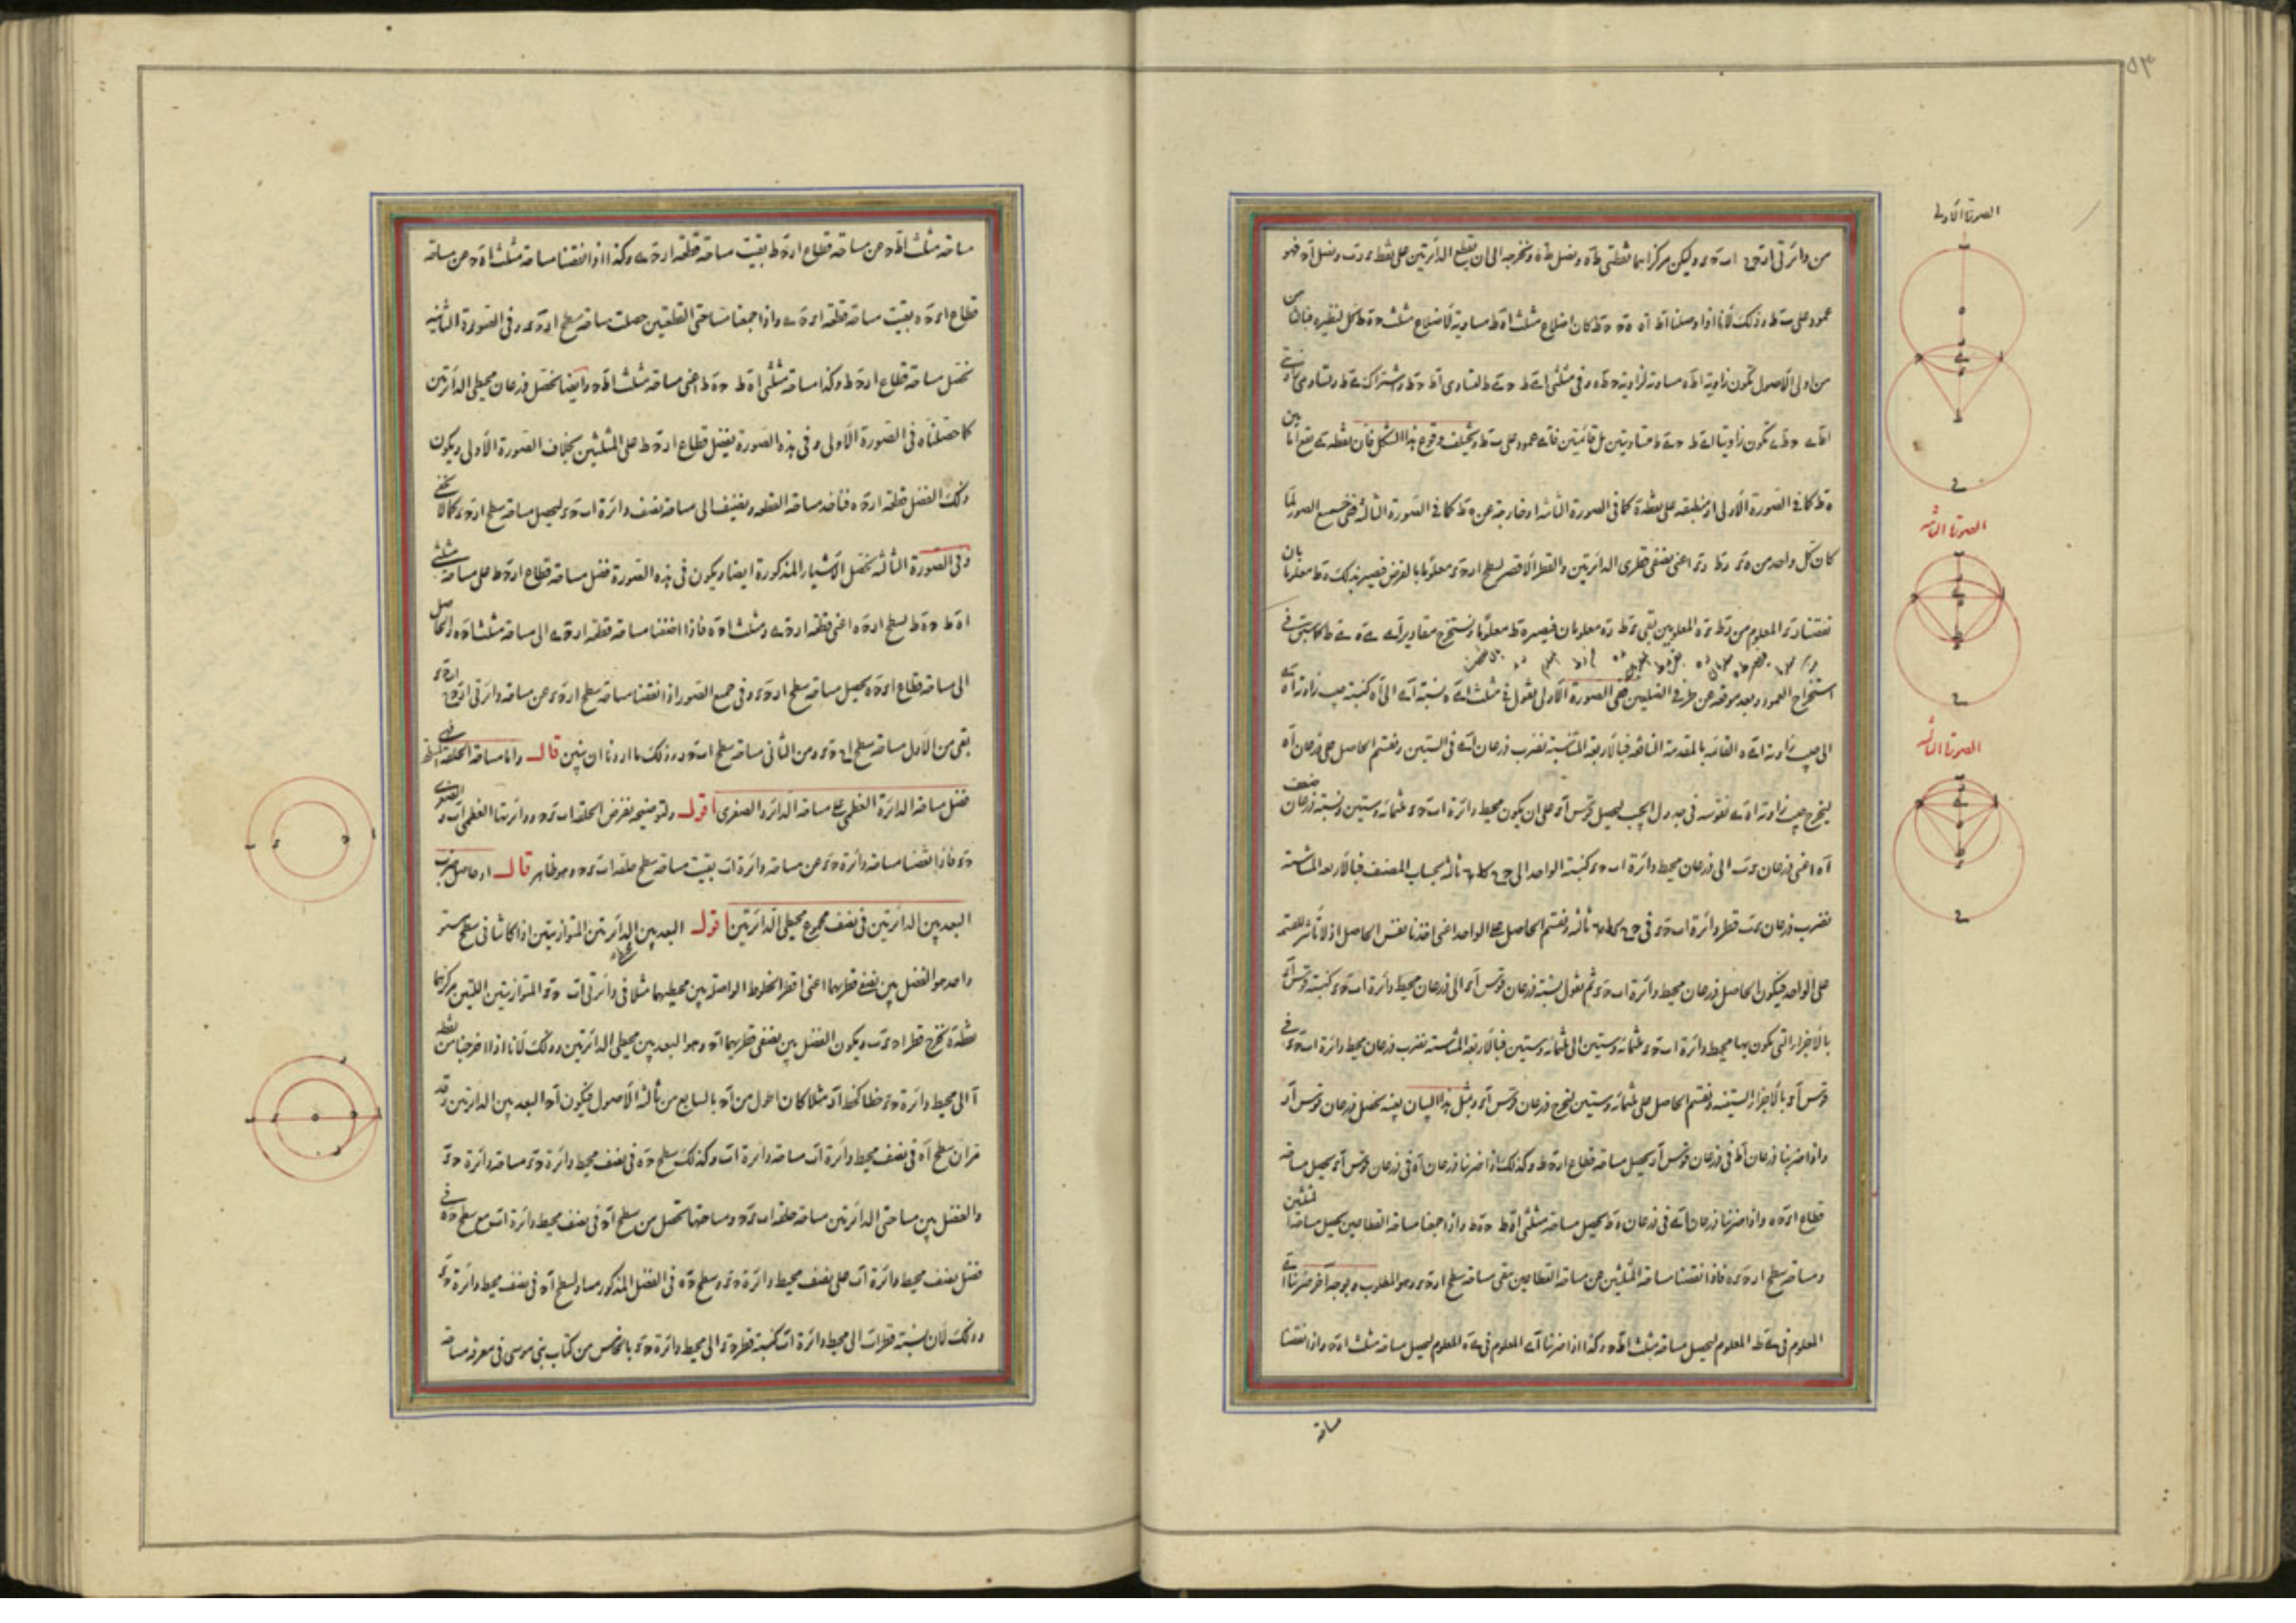 ٥٣
الصورة الاولى
الصورة الثانية
الصورة الثالثة
من دائرتى ا د ح ا ب ح ى وليكن مركزاهما نقطتى ط ه ونصل ط ه ونخرجه الى ان يقطع الدائرتين على نقط ى د ب ونصل ا ح فهو
عمود على ب ط وذلك لانا اذا وصلنا ا ط ا ه ح ه ح ط كان اضلاع مثلث ا ه ط مساوية لاضلاع مثلث ح ه ط كل لنظيره فبان من
من اولى الاصول تكون زاوية ا ط ه مساوية لزاوية ح ط ه وفى مثلثى ا ے ط ح ے ط لتساوى ا ط ح ط واشتراك ے ط وتساوى زاويتى
ا ط ے ح ط ے تكون زاويتا ا ے ط ح ے ط متساويتين بل قائمتين فا ے عمود على ب ط ويختلف وقوع هذا الشكل فان نقطة ے تقع اما بين
ه ط كما فى الصورة الاولى او منطبقة على نقطة ه كما فى الصورة الثانية او خارجة عن ه ط كما فى الصورة الثالثة ففى جميع الصور لما
كان كل واحد من ه ى د ط د ى اعنى نصفى قطرى الدائرتين والقطر الاقصر لسطح ا د ح ى معلوما بالفرض فيصير بذلك ه ط معلوما بان
نقصنا د ى المعلوم من د ط ى ه المعلومين بقى ى ط د ه معلومان فيصير ه ط معلوما ونستخرج مقادير ا ے ے ه ے ط كما سبق فى
استخراج العمود وبعد موقعه عن طرفى الضلعين ففى الصورة الاولى نقول فى مثلث ا ے ه نسبة ا ے الى ا ه كنسبة جيب زاوية ا ه ے
الى جيب زاوية ا ے ه القائمة بالمقدمة النافعة فبالاربعة المتناسبة نضرب ذرعان ا ے فى الستين ونقسم الحاصل على ذرعان ا ه
ليخرج جيب زاوية ا ه ے نقوسه فى جدول الجيب ليحصل قوس ا ى على ان يكون محيط دائرة ا ب ح ى ثلثمائة وستين ونسبة ضعف ذرعان
ا ه اعنى ذرعان ى ب الى ذرعان محيط دائرة ا ب ح ى كنسبة الواحد الى ثالثة بحساب المصنف فبالاربعة المتناسبة
نضرب ذرعان ى ب قطر دائرة ا ب ح ى فى ثالثة ونقسم الحاصل على الواحد اعنى اخذنا نفس الحاصل اذ لا تاثير للقسمة
على الواحد فيكون الحاصل ذرعان محيط دائرة ا ب ح ى ثم نقول نسبة ذرعان قوس ا ى الى ذرعان محيط دائرة ا ب ح ى كنسبة قوس ا ى
بالاجزاء التى يكون بها محيط دائرة ا ب ح ى ثلثمائة وستين الى ثلثمائة وستين فبالاربعة المتناسبة نضرب ذرعان محيط دائرة ا ب ح ى فى
قوس ا ى بالاجزاء الستينية ونقسم الحاصل على ثلثمائة وستين ليخرج ذرعان قوس ا ى وبمثل هذا البيان بعينه نحصل ذرعان قوس ا د
واذا ضربنا ذرعان ا ط فى ذرعان قوس ا د يحصل مساحة قطاع ا د ح ط وكذلك اذا ضربنا ذرعان ا ه فى ذرعان قوس ا ى يحصل مساحة
قطاع ا ى ح ه واذا ضربنا ذرعان ا ے فى ذرعان ه ط يحصل مساحة مثلثى ا ه ط ح ه ط واذا جمعنا مساحة القطاعين يحصل مساحة المثلثين
ومساحة سطح ا د ح ى فاذا نقصنا مساحة المثلثين من مساحة القطاعين بقى مساحة سطح ا د ح ى وهو المطلوب وبوجه آخر ضربنا ا ے
المعلوم فى ے ط المعلوم ليحصل مساحة مثلث ا ط ح وكذا اذا ضربنا ا ے المعلوم فى ے ه المعلوم ليحصل مساحة مثلث ا ه ح واذا نقصنا
مساحة
مساحة مثلث ا ط ح من مساحة قطاع ا د ح ط بقيت مساحة قطعة ا د ح ے وكذا اذا نقصنا مساحة مثلث ا ه ح من مساحة
قطاع ا ى ح ه بقيت مساحة قطعة ا ى ح ے واذا جمعنا مساحتى القطعتين حصلت مساحة سطح ا د ح ى وفى الصورة الثانية
نحصل مساحة قطاع ا د ح ط وكذا مساحة مثلثى ا ه ط ح ه ط اعنى مساحة مثلث ا ط ح وايضا نحصل ذرعان محيطى الدائرتين
كما حصلناه فى الصورة الاولى وفى هذه الصورة يفضل قطاع ا د ح ط على المثلثين بخلاف الصورة الاولى ويكون
ذلك الفضل قطعة ا د ح ه فنأخذ مساحة القطعة ونضيف الى مساحة نصف دائرة ا ب ح ى ليحصل مساحة سطح ا د ح ى كما لا يخفى
وفى الصورة الثالثة نحصل الاشياء المذكورة ايضا ويكون فى هذه الصورة فضل مساحة قطاع ا د ح ط على مساحة مثلثى
ا ه ط ح ه ط لسطح ا د ح ه اعنى قطعة ا د ح ے ومثلث ا ح ه فاذا اضفنا مساحة قطعة ا د ح ے الى مساحة مثلث ا ح ه والحاصل
الى مساحة قطاع ا ى ح ه يحصل مساحة سطح ا د ح ى وفى جميع الصور اذا نقصنا مساحة سطح ا د ح ى من مساحة دائرتى ا د ح
بقى من الاول مساحة سطح ا ح ى ومن الثانى مساحة سطح ا ب ح د وذلك ما اردنا ان نبين قال واما مساحة الحلقة فهى
فضل مساحة الدائرة العظمى على مساحة الدائرة الصغرى اقول ولتوضيحه نفرض الحلقة ا ب ى ح ودائرتها العظمى ا ب والصغرى
ح ى فاذا نقصنا مساحة دائرة ح ى من مساحة دائرة ا ب بقيت مساحة سطح حلقة ا ب ى ح وهو ظاهر قال او حاصل ضرب
البعد بين الدائرتين فى نصف مجموع محيطى الدائرتين اقول البعد بين الدائرتين المتوازيتين اذا كانتا فى سطح مستو
واحد هو الفضل بين نصفى قطريهما اعنى اقصر الخطوط الواصلة بين محيطيهما مثلا فى دائرتى ا ب ح ى المتوازيتين اللتين مركزهما
نقطة ه نخرج قطر ا ح ى ب ويكون الفضل بين نصفى قطريهما ا ح وهو البعد بين محيطى الدائرتين وذلك لانا اذا اخرجنا من نقطة
ا الى محيط دائرة ح ى خطا كخط ا د مثلا كان اطول من ا ح بالسابع من ثالثة الاصول فيكون ا ح البعد بين الدائرتين وقد
مر ان سطح ا ه فى نصف محيط دائرة ا ب مساحة دائرة ا ب وكذلك سطح ح ه فى نصف محيط دائرة ح ى مساحة دائرة ح ى
والفضل بين مساحتى الدائرتين مساحة حلقة ا ب ى ح ومساحتها تحصل من سطح ا ح فى نصف محيط دائرة ا ب مع سطح ح ه فى
فضل نصف محيط دائرة ا ب على نصف محيط دائرة ح ى وسطح ح ه فى الفضل المذكور مساو لسطح ا ح فى نصف محيط دائرة ح ى
وذلك لان نسبة قطر ا ب الى محيط دائرة ا ب كنسبة قطر ح ى الى محيط دائرة ح ى بالخامس من كتاب بنى موسى فى معرفة مساحة